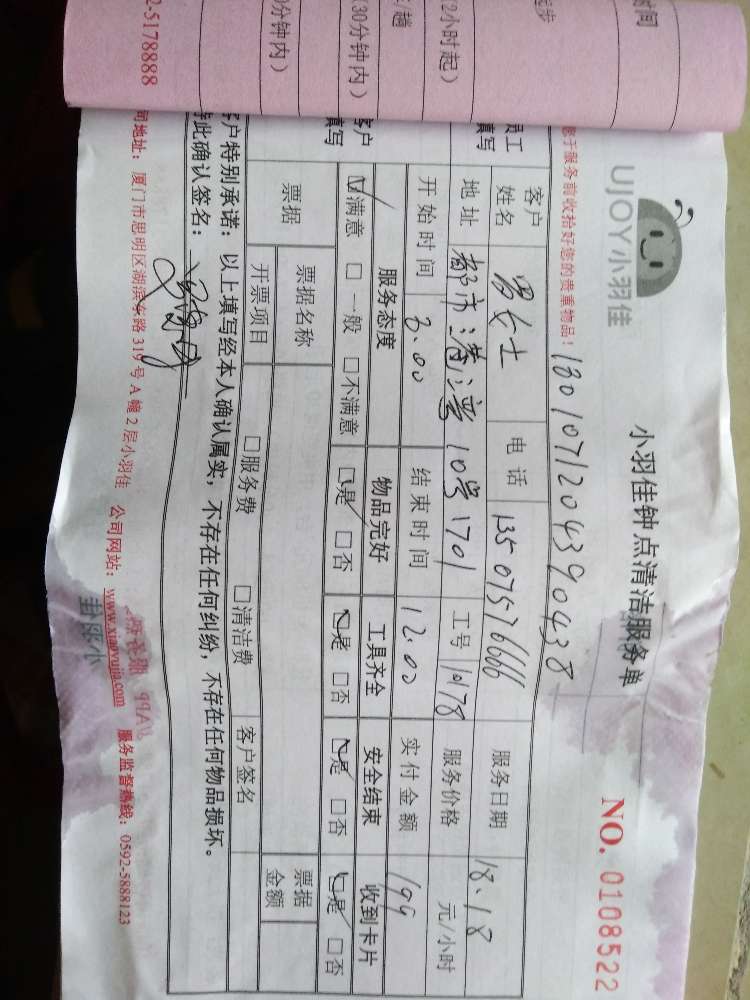 UJOY小羽佳
小羽佳钟点清洁服务单
NO. 0108522
您于服务前收拾好您的贵重物品！
1301071204390438
员工
填写
客户
姓名
女士
电话
13507576666
服务日期
18.18
地址
10号1701
工号
服务价格
元/小时
开始时间
结束时间
12.00
实付金额
199
客户
填写
服务态度
物品完好
工具齐全
安全结束
收到卡片
☑满意 □一般 □不满意
☑是 □否
☑是 □否
☑是 □否
☑是 □否
票据
票据名称
票据
金额
开票项目
□服务费
□清洁费
客户签名
客户特别承诺：以上填写经本人确认属实，不存在任何纠纷，不存在任何物品损坏。
此确认签名：
司地址：厦门市思明区湖滨东路319号A幢2层小羽佳 公司网站：www.xiaoyujia.com 服务监督热线：0592-5888123
时间
起步
2小时起）
/趟
30分钟内）
0分钟内）
2-5178888